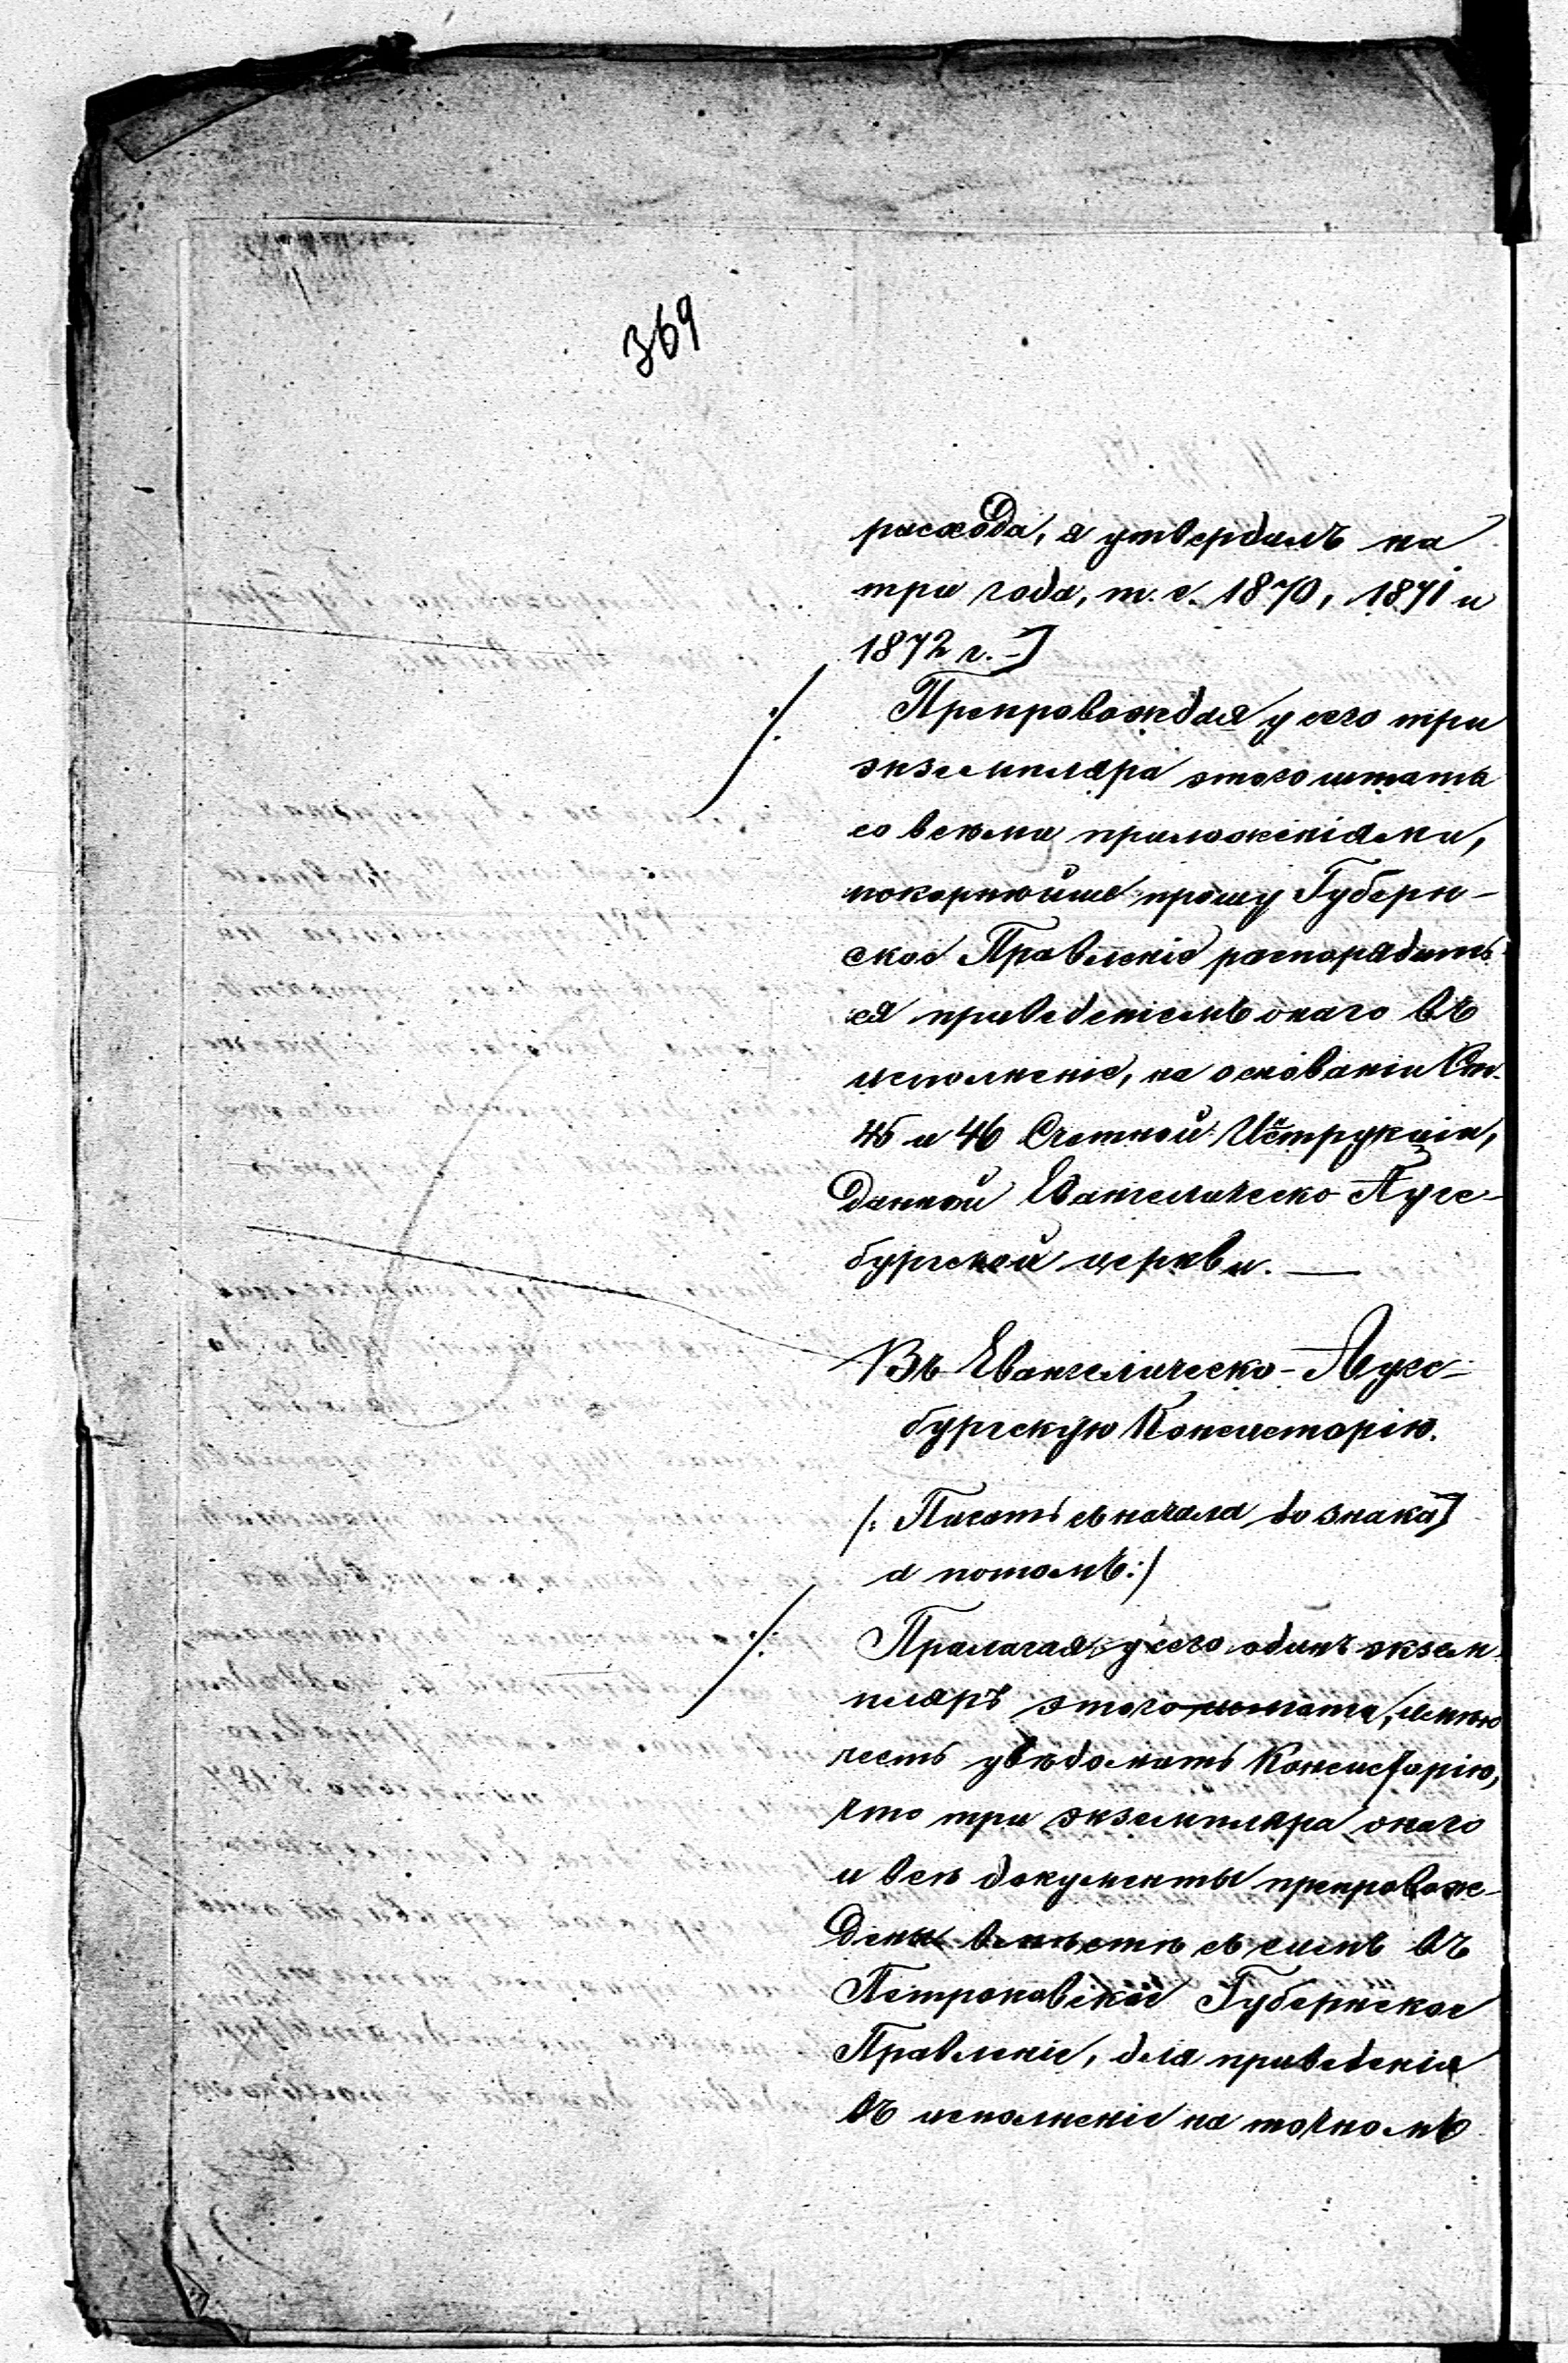 369
расхода, я утвердилъ на
три года, т. е. 1870, 1871 и
1872 г. -]
Препровождая у сего три
экземпляра этого штата
со всѣми приложеніями,
покорнѣйше прошу Губерн-
ское Правленіе распорядить-
ся приведеніемъ онаго въ
исполненіе, на основаніи Ст.
45 и 46 Счетной Иструкціи,
данной Евангелическо Аугс-
бургской церкви. —
Въ Евангелическо-Аугс-
бургскую Консисторію.
/: Писать съ начала до знака]
а потомъ:/
Прилагая у сего одинъ экзем-
пляръ этого штата, имѣю
честь увѣдомить Консисторію,
что три экземпляра онаго
и всѣ документы препровож-
дены вмѣстѣ съ симъ въ
Петроковское Губернское
Правленіе, для приведенія
въ исполненіе на точномъ